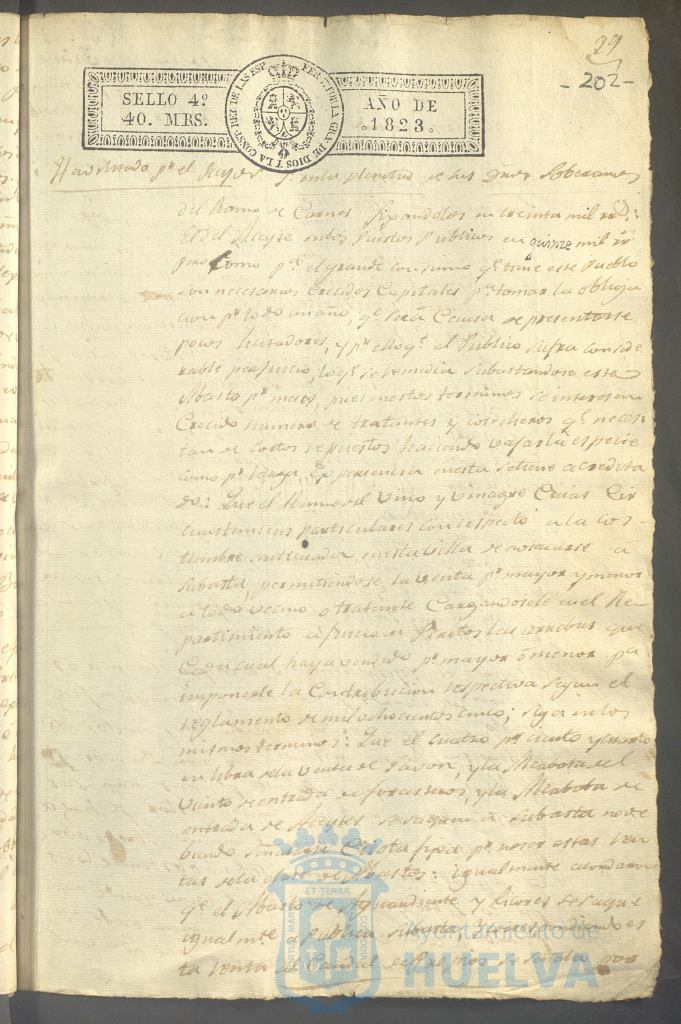 29
- 202 -
SELLO 4º
40. MRS.
FER. 7. POR LA GRA. DE DIOS Y LA CONST. REY DE LAS ESP.
AÑO DE
1823.
Havilitado pr el Rey
del Ramo de Carnes fixandolos en treinta mil rrs:
El del Aceyte en los Puestos Publicos en quinze mil rrs
pero como pa el grande consumo qe tiene este Pueblo
son necesarios crecidos Capitales pa tomar la obliga
cion pr todo un año, qe será Causa de presentarse
pocos licitadores, y pr ello qe el Publico sufra conside
rable perjuicio, lo qe se remedia subastandose este
Abasto pr meses, pues en estos terminos se interesan
Crecido numero de tratantes y cosecheros qe necesi
tan de cortos repuestos haciendo vajar la especie
como pr larga Experiencia en esta se tiene acredita
do: Que el Ramo del Vino y Vinagre Cuias Cir
cunstancias particulares con respecto a la cos-
tumbre anticuada en esta Villa de no sacarse a
subasta, permitiendose la venta pr mayor y menor
a todo vecino o tratante Cargandosele en el Re-
partimiento a juicio de Peritos las arrobas que
Cada cual haya vendido pr mayor ó menor pa
imponerle la Contribucion respectiva segun el
reglamento de mil ochocientos cinco; siga en los
mismos terminos: Que el cuatro pr ciento y cuarto
en libra de la venta de Javon, y la Alcabala del
Viento de entrada de forasteros, y la Alcabala de
entrada de Aceytes se saquen a subasta no de
biendo Cuota fixa pr no ser estas Ren
tas de la clase de Abastos: igualmente acordaron
qe el Abasto de Aguardiente y Licores se saque
igualmte a publica subasta,
ta venta del Caudal de Propios se señala por
ET TERRÆ
PORTUS MARIS
CUSTODIA
Ayuntamiento de
HUELVA